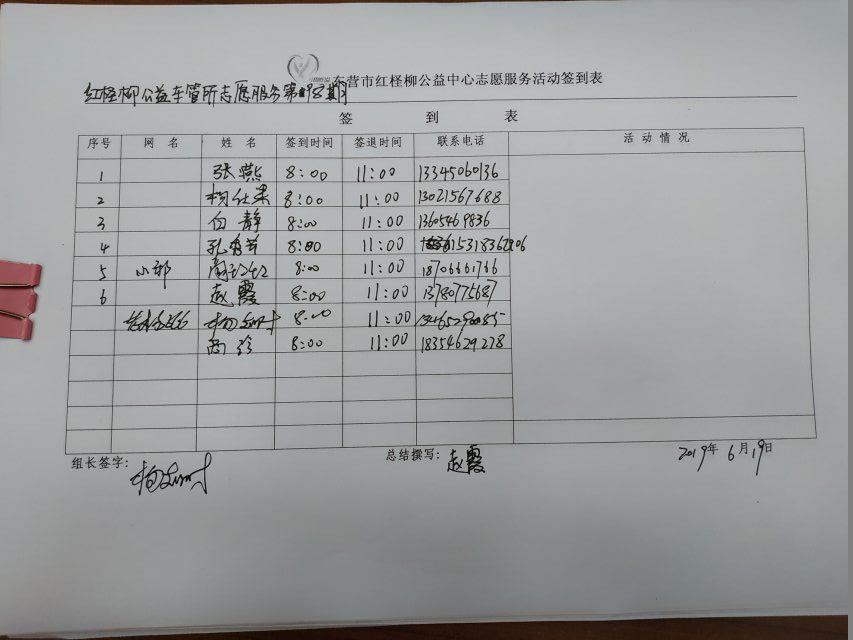 东营市红柽柳公益中心志愿服务活动签到表
红柽柳公益车管所志愿服务第 98期
签 到 表
序号 网 名 姓 名 签到时间 签退时间 联系电话 活动情况
1 张燕 8:00 11:00 13345060136
2 8:00 11:00 13021567688
3 白静 8:00 11:00 13605469836
4 8:00 11:00 15318362206
5 小郭 8:00 11:00 18706661766
6 赵霞 8:00 11:00 13780775687
8:00 11:00 13465290085
8:00 11:00 18354629278
组长签字: 总结撰写: 赵霞 2019年6月19日